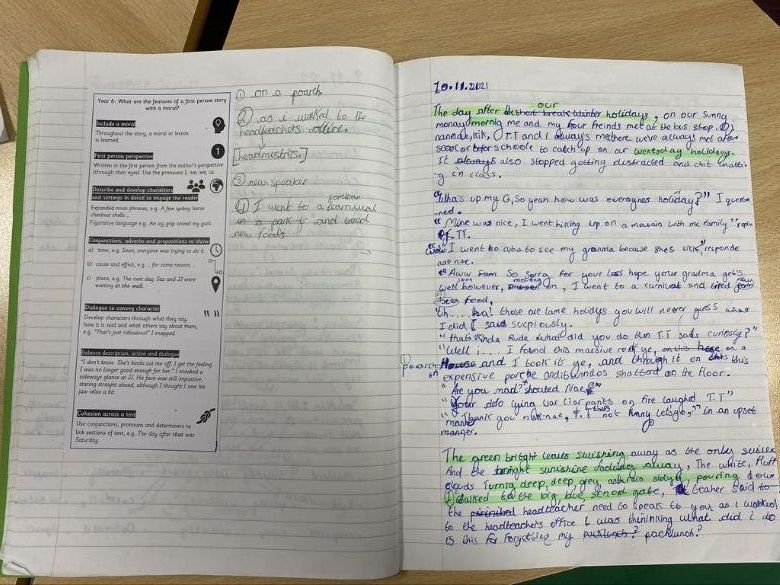 Year 6- What are the features of a first person story
with a moral?
Include a moral
Throughout the story, a moral or lesson
is learned.
First person perspective
Written in the first person from the author's perspective
(through their eyes). Use the pronouns I, me, we, us
Describe and develop characters
and settings in detail to engage the reader
Expanded noun phrases, e.g. A few spikey horse
chestnut shells
Figurative language e.g. An icy pop raced my gust
Conjunctions, adverbs and prepositions to show:
a) time, e.g. Soon, everyone was trying to do it.
b) cause and effect, e.g. .. for some reason ..
c) place, e.g. The next day, Sas and JJ were
waiting at the wall.
Dialogue to convey character
Develop characters through what they say,
how it is said and what others say about them,
e.g. "That's just ridiculous!" I snapped.
Balance description, action and dialogue
"I don't know. She's kinda cut me off. I get the feeling
I was no longer good enough for her." I sneaked a
sideways glance at JJ. His face was still impassive,
staring straight ahead, although I thought I saw his
jaw relax a bit.
Cohesion across a text
Use conjunctions, pronouns and determiners to
link sections of text, e.g. The day after that was
Saturday.
① on a poarch
② as i walked to the
headteachers office.
[headmistres.]
③ new speaker
④ I went to a carnival
in a park and tried
new foods.
10.11.2021
our
The day after holidays, on our sunny
monday morning me and my four freinds met at the bus stop.
and I always met here we've always met after
school or before schoole to catch up on our wensday holidays.
It also stopped getting distracted and chit chatting
in class.
"Whats up my G, So yeah how was everyones holiday?" I questio
ned.
"Mine was nice, I went hiking up on a moutain with my family"
T.T.
I went to cuba to see my granma because shes sick", responde
nae nae.
"Aww Fam So Sorry for your loss hope your gradma gets
well however, moving on, I went to a carnival and tried
food,
"Uh... ha! those are lame holidys you will never guss what
I did I said sucpiously.
"thats kinda Rude what did you do then T.T said curiosly?"
"Well .... I found this massive rock ye, on a
poarch and I took it ye, and through it on this
expensive porche and shatterd on the floor.
"Are you mad? shouted Nae
lying Liar Liar pants on fire laughed T.T"
"Thank you nae nae, T.T thats not funny letsgo," in an upset
manger.
The green bright leaves swishing away as the only
And the bright sunishine away, The white, fluff
clouds Turning deep, deep grey pouring down
I walked to the big, blue, school gate, teacher said to
the headteacher need to speak to you as i walked
to the headteachers office i was thininking what did i do
is this for Forgotting my packlunch? packlunch?